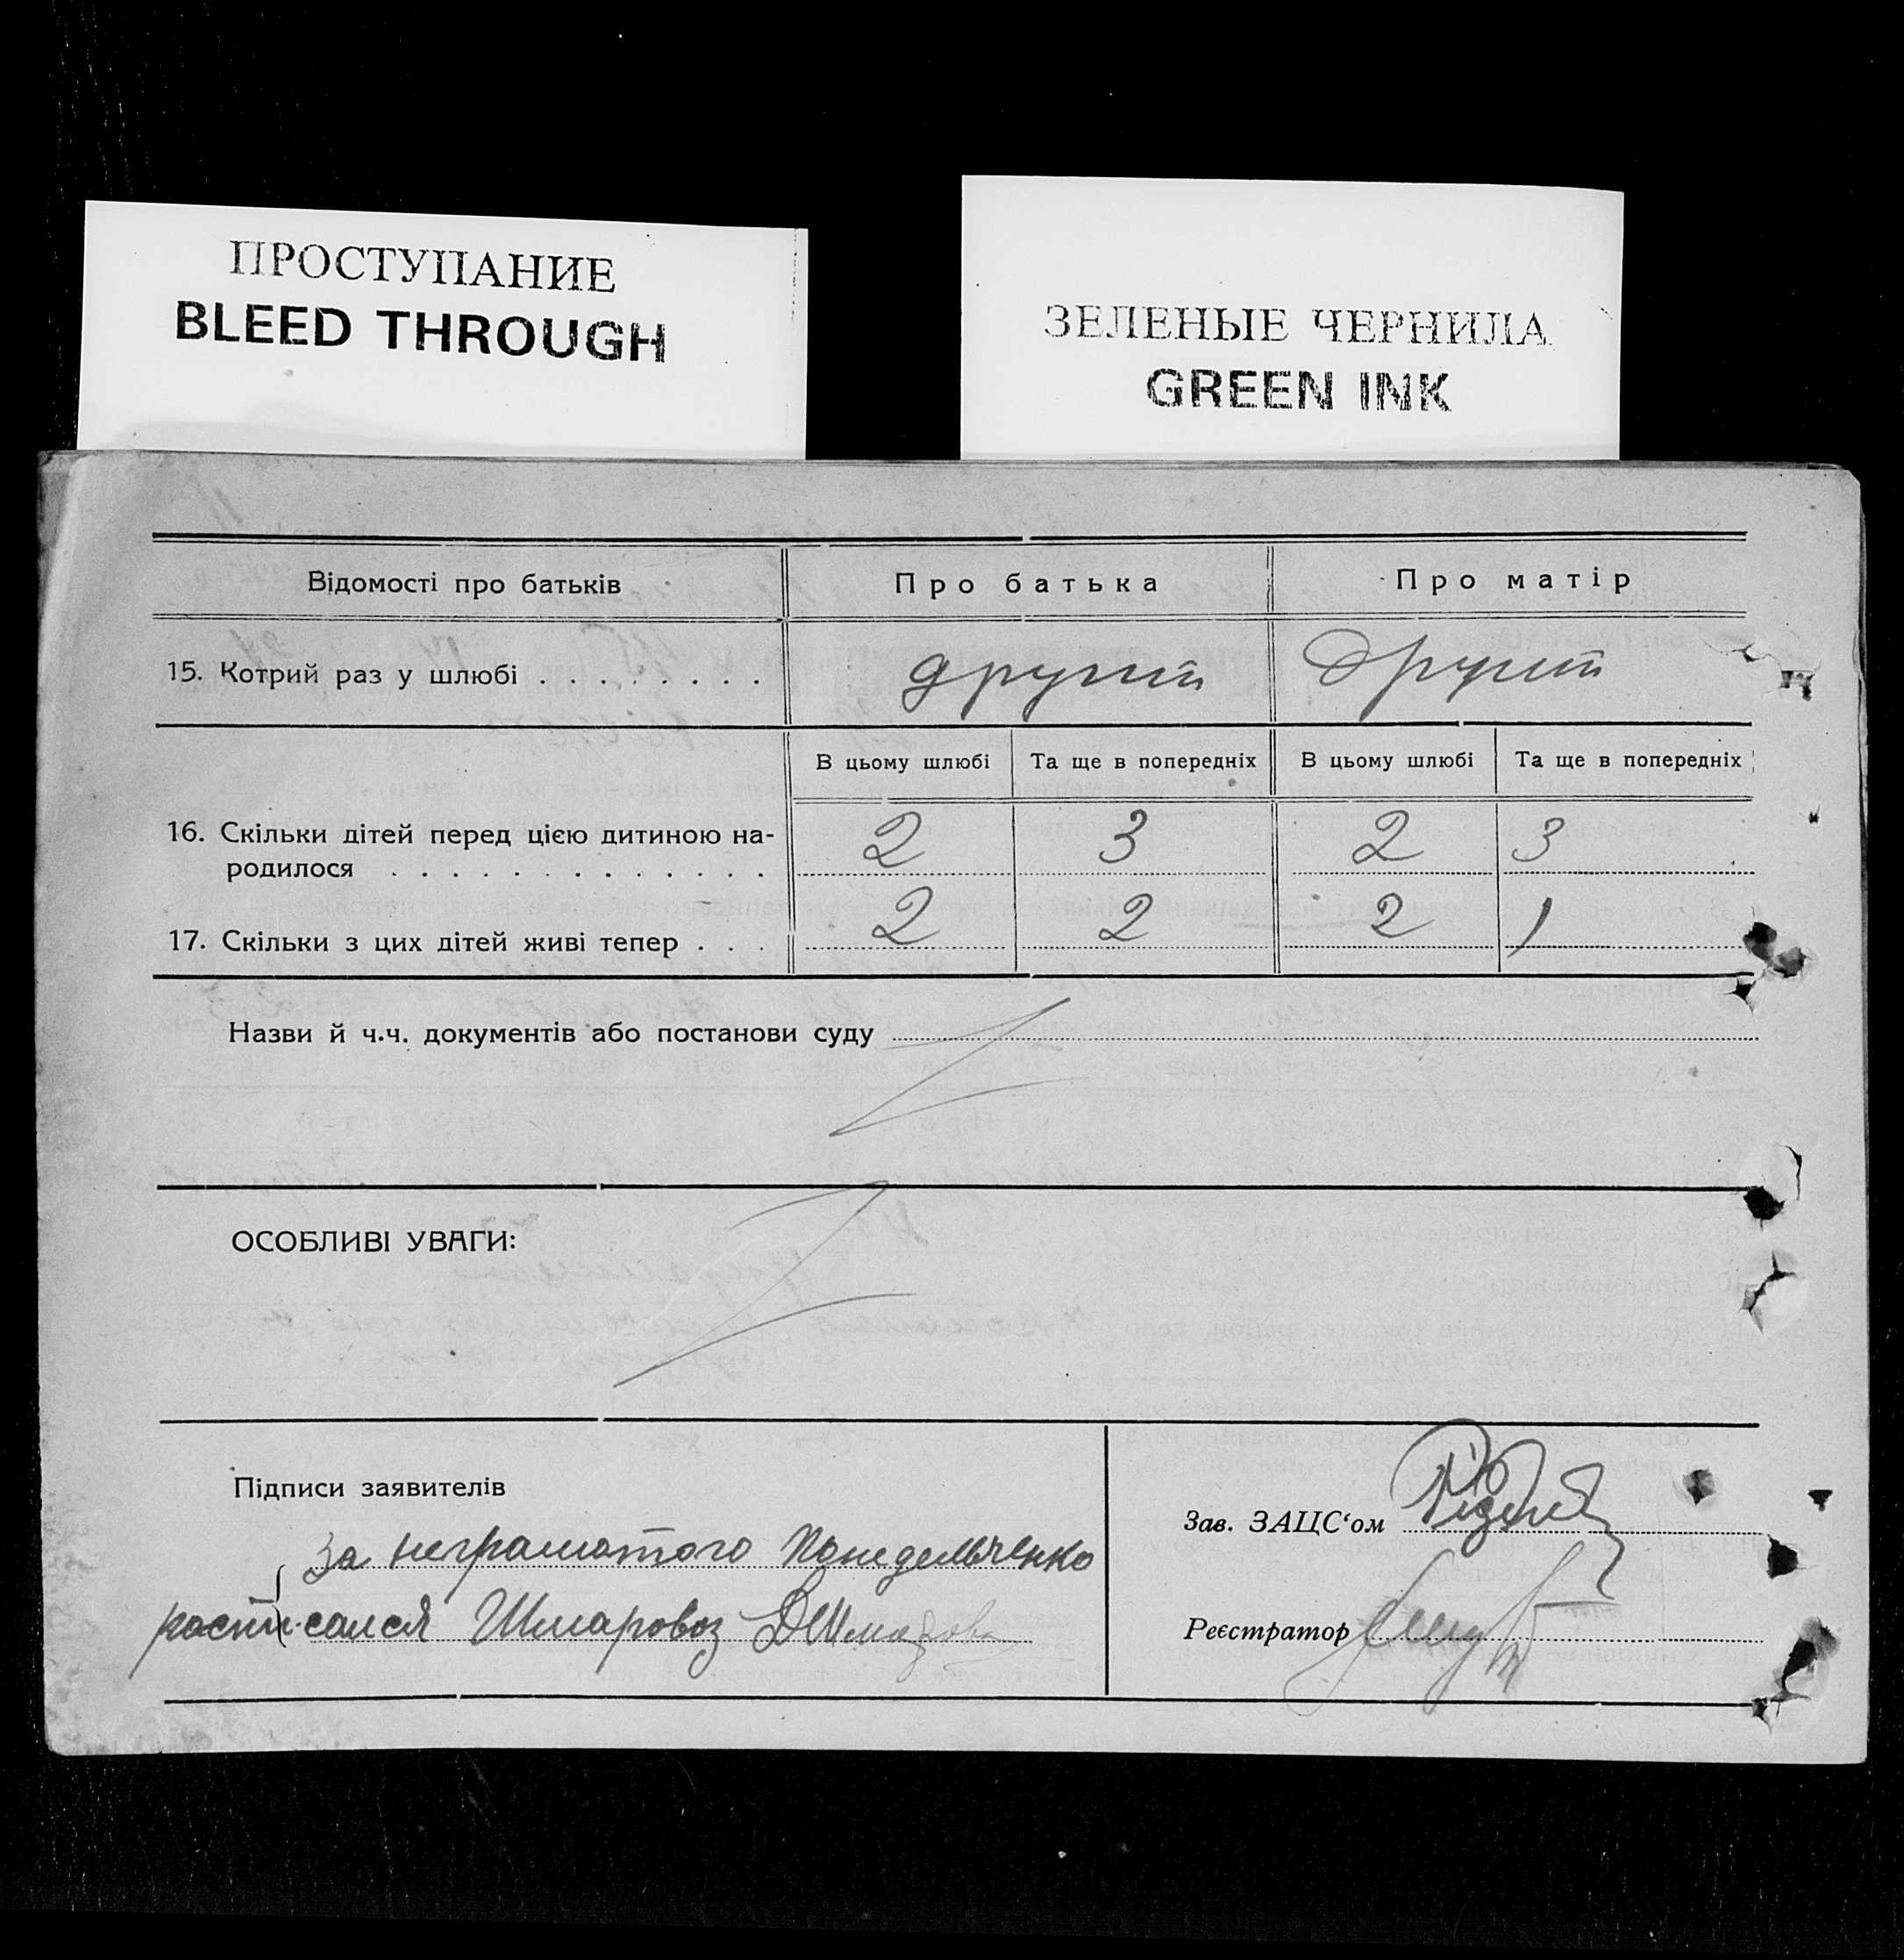 ПРОСТУПАНИЕ
BLEED THROUGH
ЗЕЛЕНЫЕ ЧЕРНИЛА
GREEN INK
Відомості про батьків Про батька Про матір
15. Котрий раз у шлюбі . . . . . . . . другий другий
В цьому шлюбі Та ще в попередніх В цьому шлюбі Та ще в попередніх
16. Скільки дітей перед цією дитиною на-
родилося . . . . . . . . . . . . . 2 3 2 3
17. Скільки з цих дітей живі тепер . . . 2 2 2 1
Назви й ч.ч. документів або постанови суду
ОСОБЛИВІ УВАГИ:
Підписи заявителів
За неграмотого Понедельченко
росписался Шмаровоз
Зав. ЗАЦС‘ом
Реєстратор